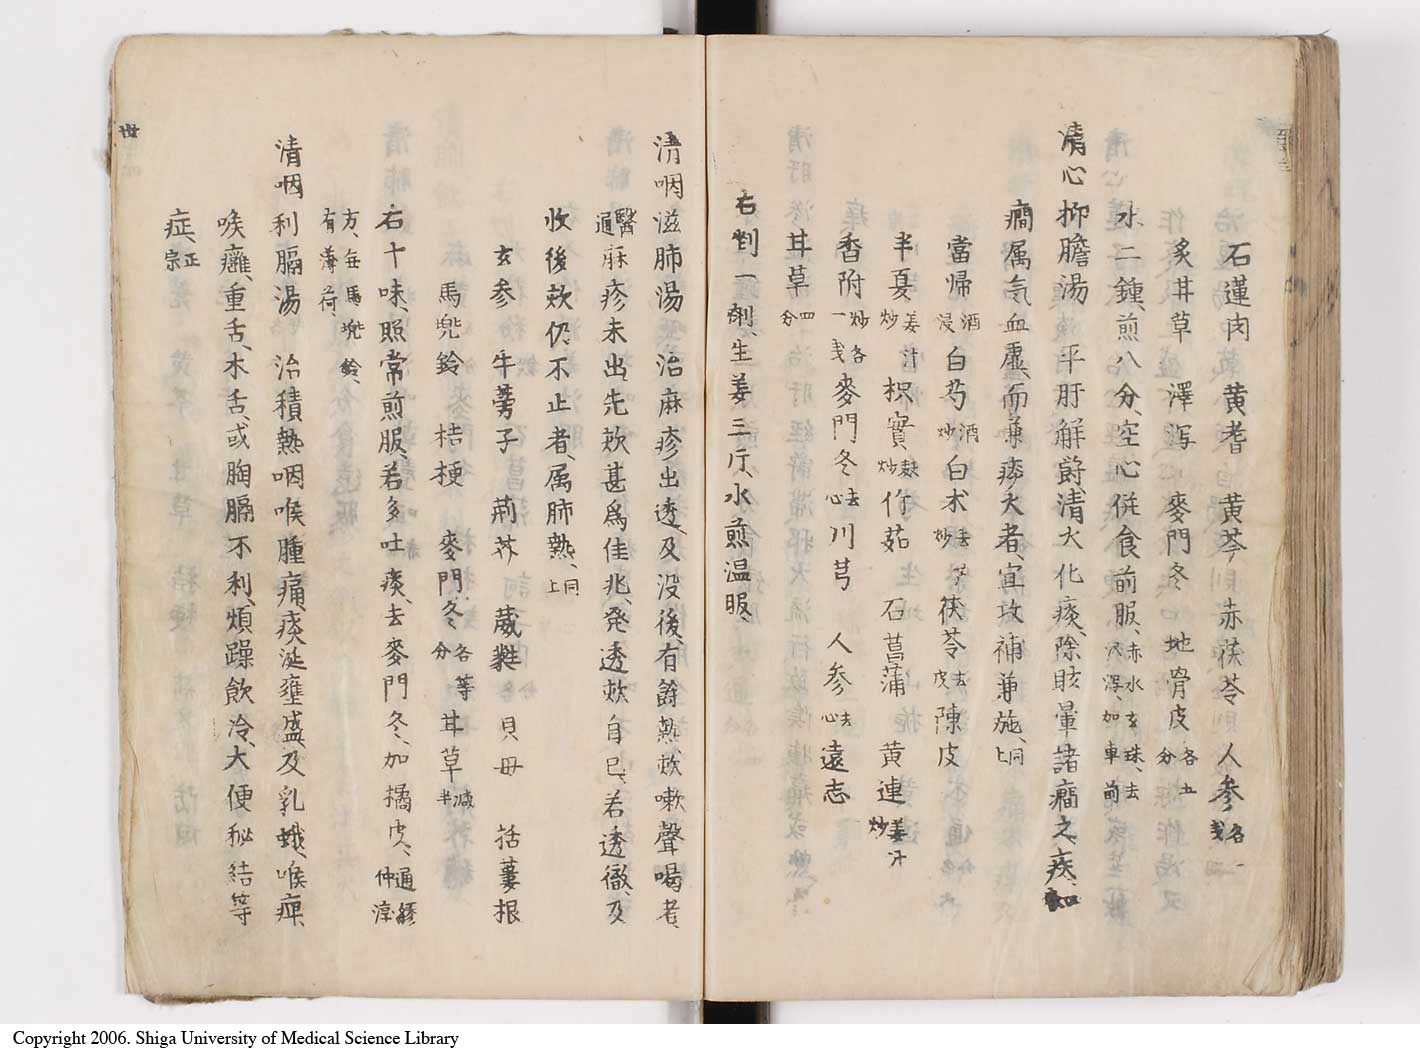 石蓮肉 黄耆 黄芩 赤茯苓 人参各一戔
炙甘草 澤瀉 麥門冬 地骨皮各五分
水二鍾煎八分空心併食前服赤水玄珠去沢瀉加車前
清心抑膽湯 平肝解欝清火化痰除眩暈諸癇之疾
癇属気血虚而兼痰火者宜攻補兼施同上
當帰酒浸 白芍酒炒 白术去芦炒 茯苓去皮 陳皮
半夏姜汁炒 枳實麩炒 竹茹 石菖蒲 黄連姜汁炒
香附炒各一戔 麥門冬去心 川芎 人参 遠志去心
甘草四分
右剉一劑生姜三片水煎温服
清咽滋肺湯 治麻疹出透及没後有餘熱欬嗽聲喝者
醫通麻疹未出先欬甚為佳兆発透欬自已若透徹及
收後欬仍不止者属肺熱同上
玄参 牛蒡子 荊芥 葳蕤 貝母 括蔞根
馬兜鈴 桔梗 麥門冬各等分 甘草減半
右十味照常煎服若多吐痰去麥門冬加橘皮通繆仲淳
方毎馬兜鈴有薄荷
清咽利膈湯 治積熱咽喉腫痛痰涎壅盛及乳蛾喉痺
喉癰重舌木舌或胸膈不利煩躁飲冷大便秘結等
症正宗